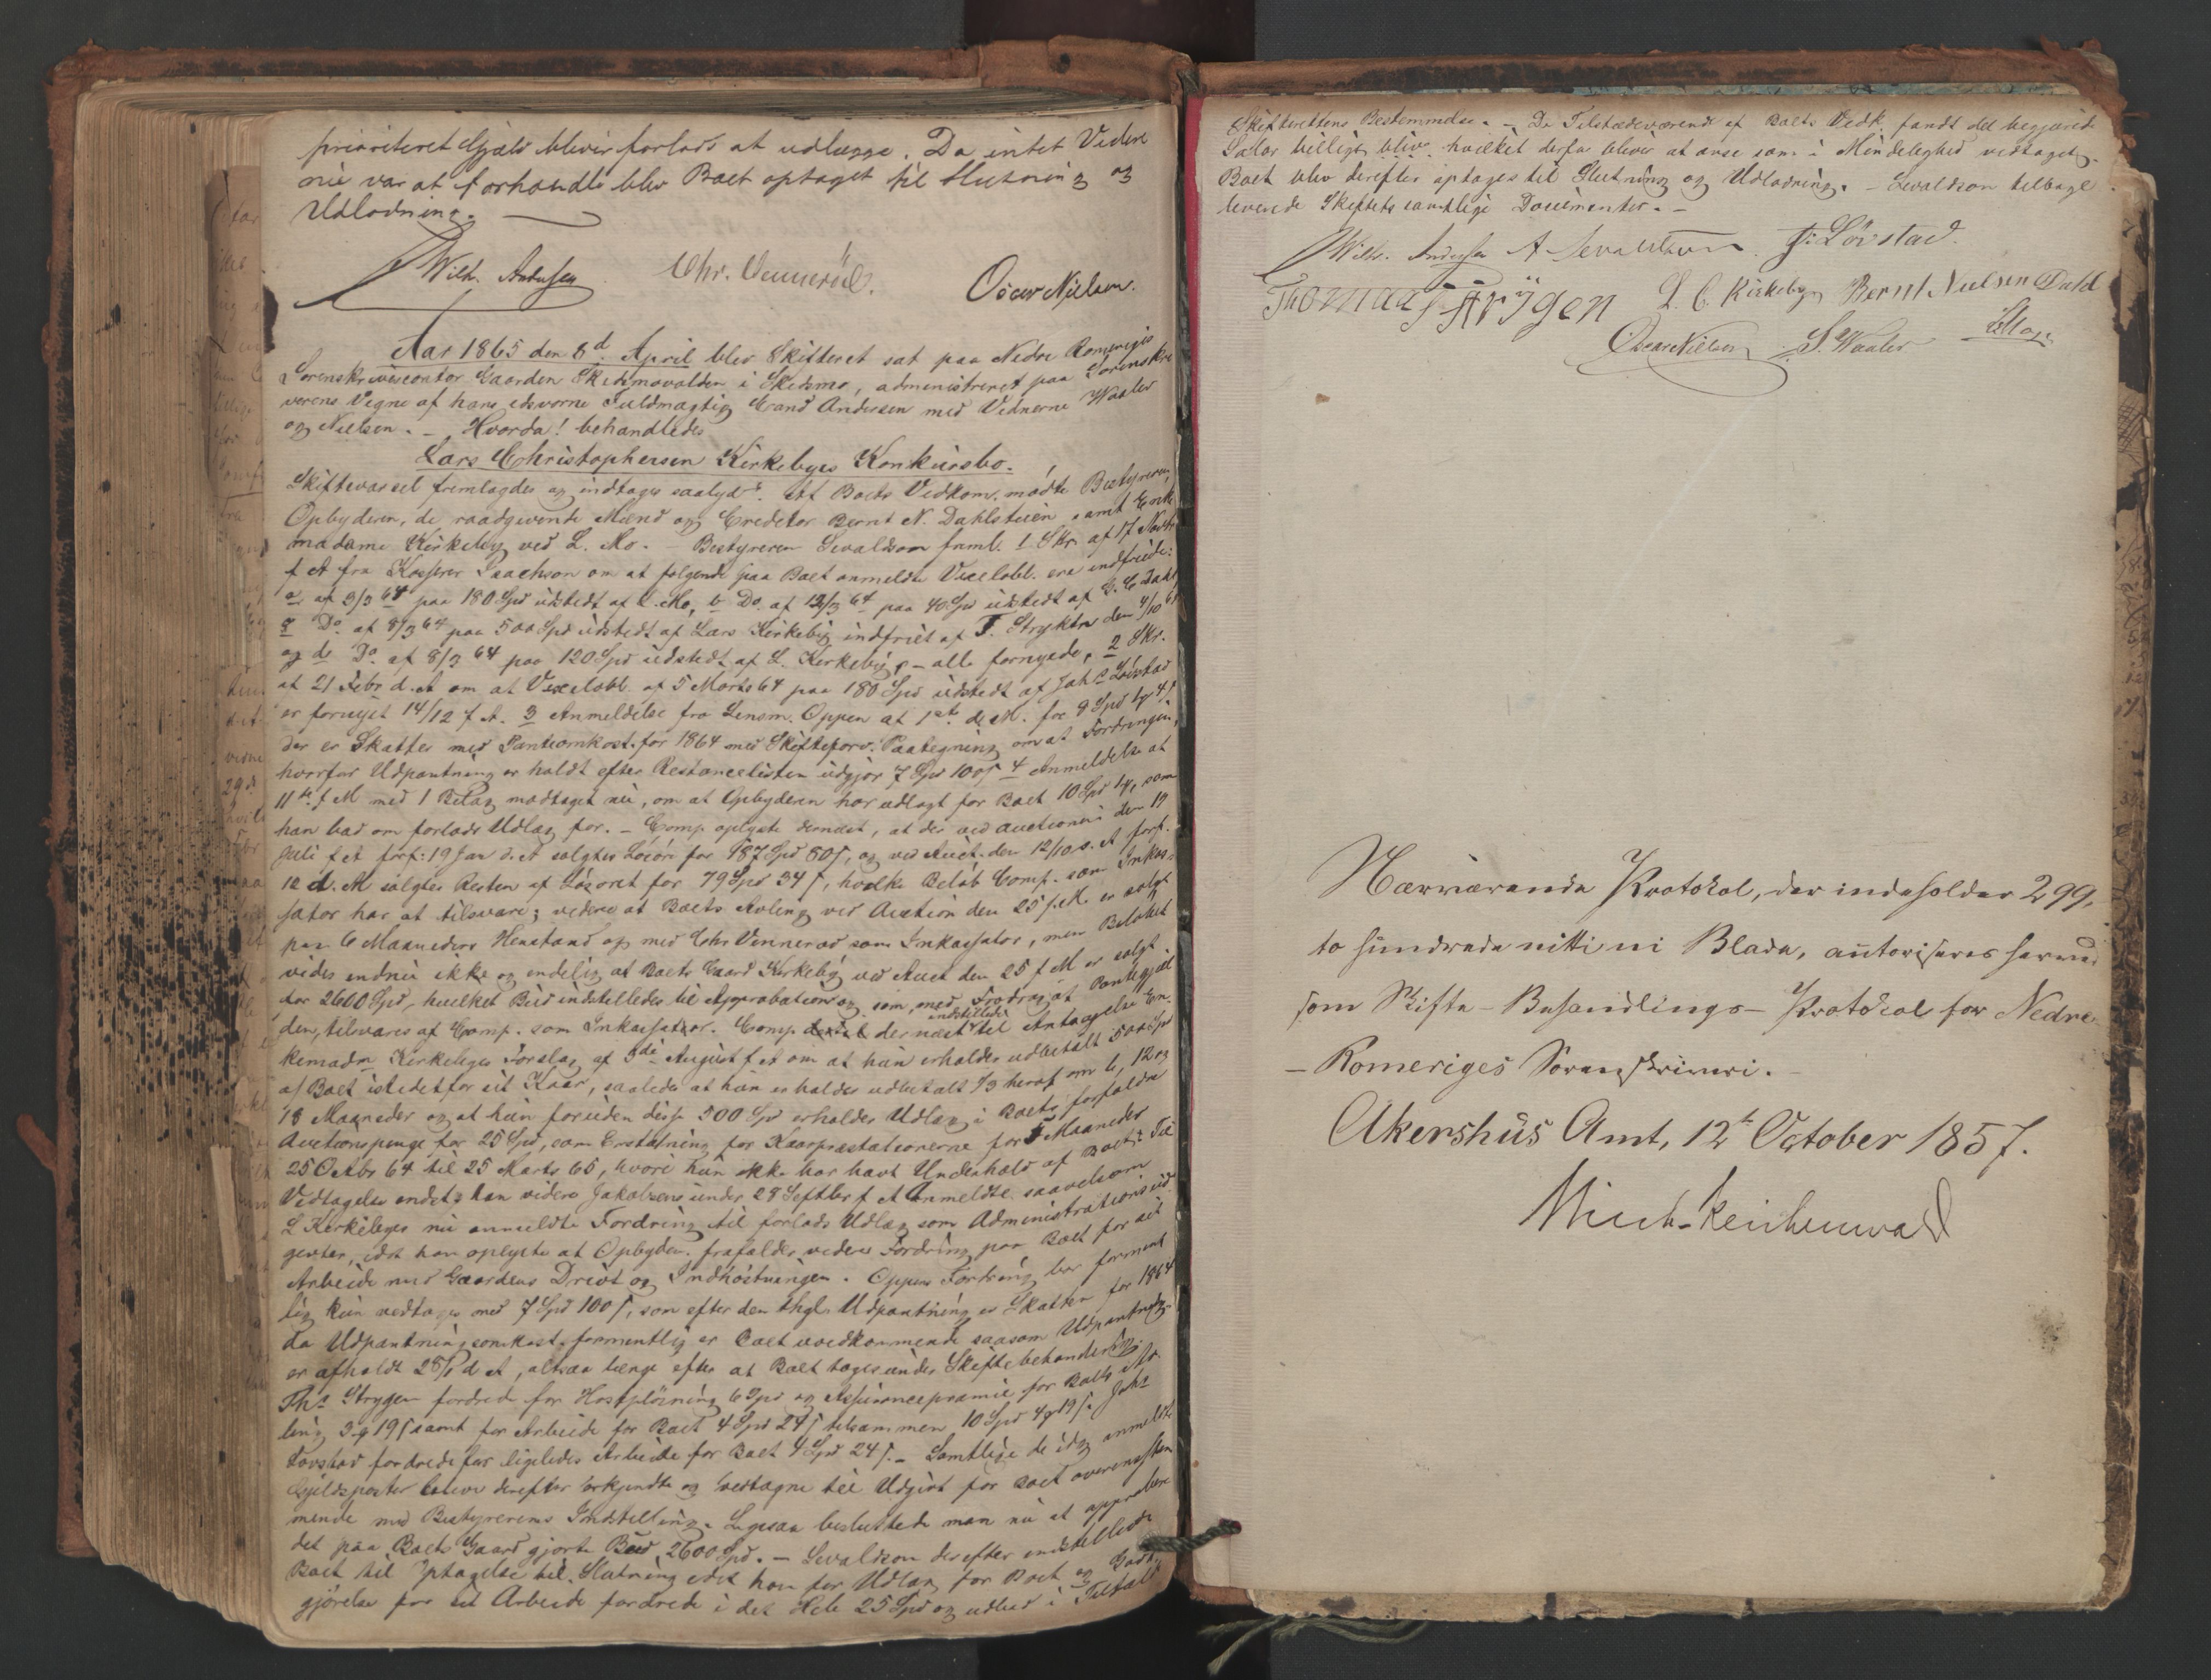 prioriteret Gjæld blivir forlods at udlægge. Da intet Videre
nu var at forhandle blev Boet optaget til Slutning og
Udlodning.
Wilh. Andersen Chr. Vennerød. Oscar Nielsen.
Aar 1865 den 8d April blev Skifteret sat paa Nedre Romerigis
Sorenskrivercontor Gaarden Skedsmovolden i Skedsmo, administreret paa Sorenskri
verens Vegne af hans edsvorne Fuldmægtig Cand Andersen med Vidnerne Waaler
og Nielsen. – Hvorda! behandledes
Lars Christophersen Kirkebyes Konkursbo.
Skiftevarsel fremlagdes og indtages saalyde. Af Boets Vedkom. mødte Bestyreren,
Opbyderen, de raadgivende Mænd og Creditor Bernt N. Dahlstuen, samt Enke
madame Kirkeby ved L. Mo. – Bestyreren Sevaldson freml. 1 Skr. af 17 Novbr
f A fra Kasserer Isachson om at følgende paa Boet anmeldte Vexelobl. ere indfriede:
a, af 3/3 64 paa 180 Spd udstedt af L. Mo, b Do. af 12/3 64 paa 40 Spd udstedt af G. C Dahl,
c Do. af 8/3 64 paa 500 Spd udstedt af Lars Kirkeby indfriet af T. Strykén den 4/10 64
og d Do. af 8/3 64 paa 120 Spd udstedt af L. Kirkeby, – alle fornyede, 2 Skr.
af 21 Febr d. A om at Vexelobl. af 5 Marts 64 paa 180 Spd udstedt af Johs Løvstad
er fornyet 14/12 f A. 3 Anmeldelse fra Lensm. Oppen af 1st d. M. for 8 Spd
der er Skatter med Panteomkost. for 1864 med Skifteforv. Paategning om at Fordringen,
hvorfor Udpantning er holdt efter Restancelisten udgjør 7 Spd 100 s 4 Anmeldelse af
11te f M med 1 Bilag modtaget nu, om at Opbyderen har udlagt for Boet 10 Spd som
han bad om forlods Udlæg for. – Comp. oplyste dernæst, at der ved Auctionen den 19
Juli f A forf: 19 Jan d. A solgtes Løsøre for 187 Spd 80 s, og ved Auct. den 12/10 s. A forf.
12 d. M solgtes Resten af Løsøret for 79 Spd 34 s, hvilke Beløb Comp. som Inkas-
sator har at tilsvare; videre at Boets Avling ved Auction den 25 f. M. er solgt
paa 6 Maaneders Henstand og med Chr Vennerød som Inkassator, men Beløbet
vides endnu ikke og endelig at Boets Gaard Kirkeby ved Auct den 25 f M er solgt
for 2600 Spd, hvilket Bud indstilledes til Approbation og som, med Fradrag af Pantegjæl
den, tilsvares af Comp. som Inkassator. Comp. indstillede dernæst til Antagelse En-
kemadm Kirkebyes Forslag af 3die August f A om at hun erholder udbetalt 500 Spd
af Boet istedetfor sit Kaar, saaledes at hun erholder udbetalt 1/3 heraf om 6, 12 og
18 Maaneder og at hun foruden disse 500 Spd erholder Udlæg i Boets forfaldne
Auctionspenge for 25 Spd, som Erstatning for Kaarpræstationerne for 5 Maaneder
25 Octbr 64 til 25 Marts 65, hvori hun ikke har havt Underhold af Boet. Til
Vedtagelse indstk han videre Jakobsens under 28 Septbr f A Anmeldte saavelsom
L Kirkebyes nu anmeldte Fordring til forlods Udlæg som Administrationsud
gevter, idet han oplyste at Opbyder. frafalder videre Fordring paa Boet for sit
Arbeide med Gaardens Drivt og Indhøstningen. Oppens Fordring bør forment
lig kun vedtages med 7 Spd 100 s, som efter den thgl. Udpantning er Skatten for 1864
da Udpantningsomkost. formentlig er Boet uvedkommende saasom Udpantning
er afholdt 28/1 d A, altsaa længe efter at Boet toges under Skiftebehandling.
Ths Strygen fordred for Høstpløining 6 Spd og Assurancepræmie for Boets Av-
ling 3 # 19 s samt for Arbeide for Boet 4 Spd 24 s tilsammen 10 Spd 4 # 19 s. Johs
Løvstad fordrede for ligeledes Arbeide for Boet 4 Spd 24 s. – Samtlige de idag anmeldte
Gjældsposter bleve derefter erkjendte og vedtagne til Udgivt for Boet overensstem
mende med Bestyrerens Indstilling. Ligesaa besluttede man nu at approbere
det paa Boets Gaard gjorte Bud 2600 Spd. – Sevaldson derefter indstillede
Boet til Optagelse til Slutning idet han for Udlæg for Boet og Godt-
gjørelse for sit Arbeide fordrede i det Hele 25 Spd og udbad i Tilfælde
Skifterettens Bestemmelse. – De Tilstedeværende af Boets Vedk. fandt det begjærede
Salær billigt, hvilket derfor bliver at anse som i Mindelighed vedtaget.
Boet blev derefter optages til Slutning og Udlodning. – Sevaldson tilbage
leverede Skiftets samtlige Documenter. –
Wilh. Andersen A Sevaldson J: Løvstad.
Thomas Strygen L. C. Kirkeby Bernt Nielsen Dahl
Oscar Nielsen S. Waaler L Mo
Nærværende Protokol, der indeholder 299,
to hundrede nitti ni Blade, autoriseres herved
som Skifte-Behandlings-Protokol for Nedre-
– Romeriges Sorenskriveri. –
Akershus Amt, 12t October 1857.